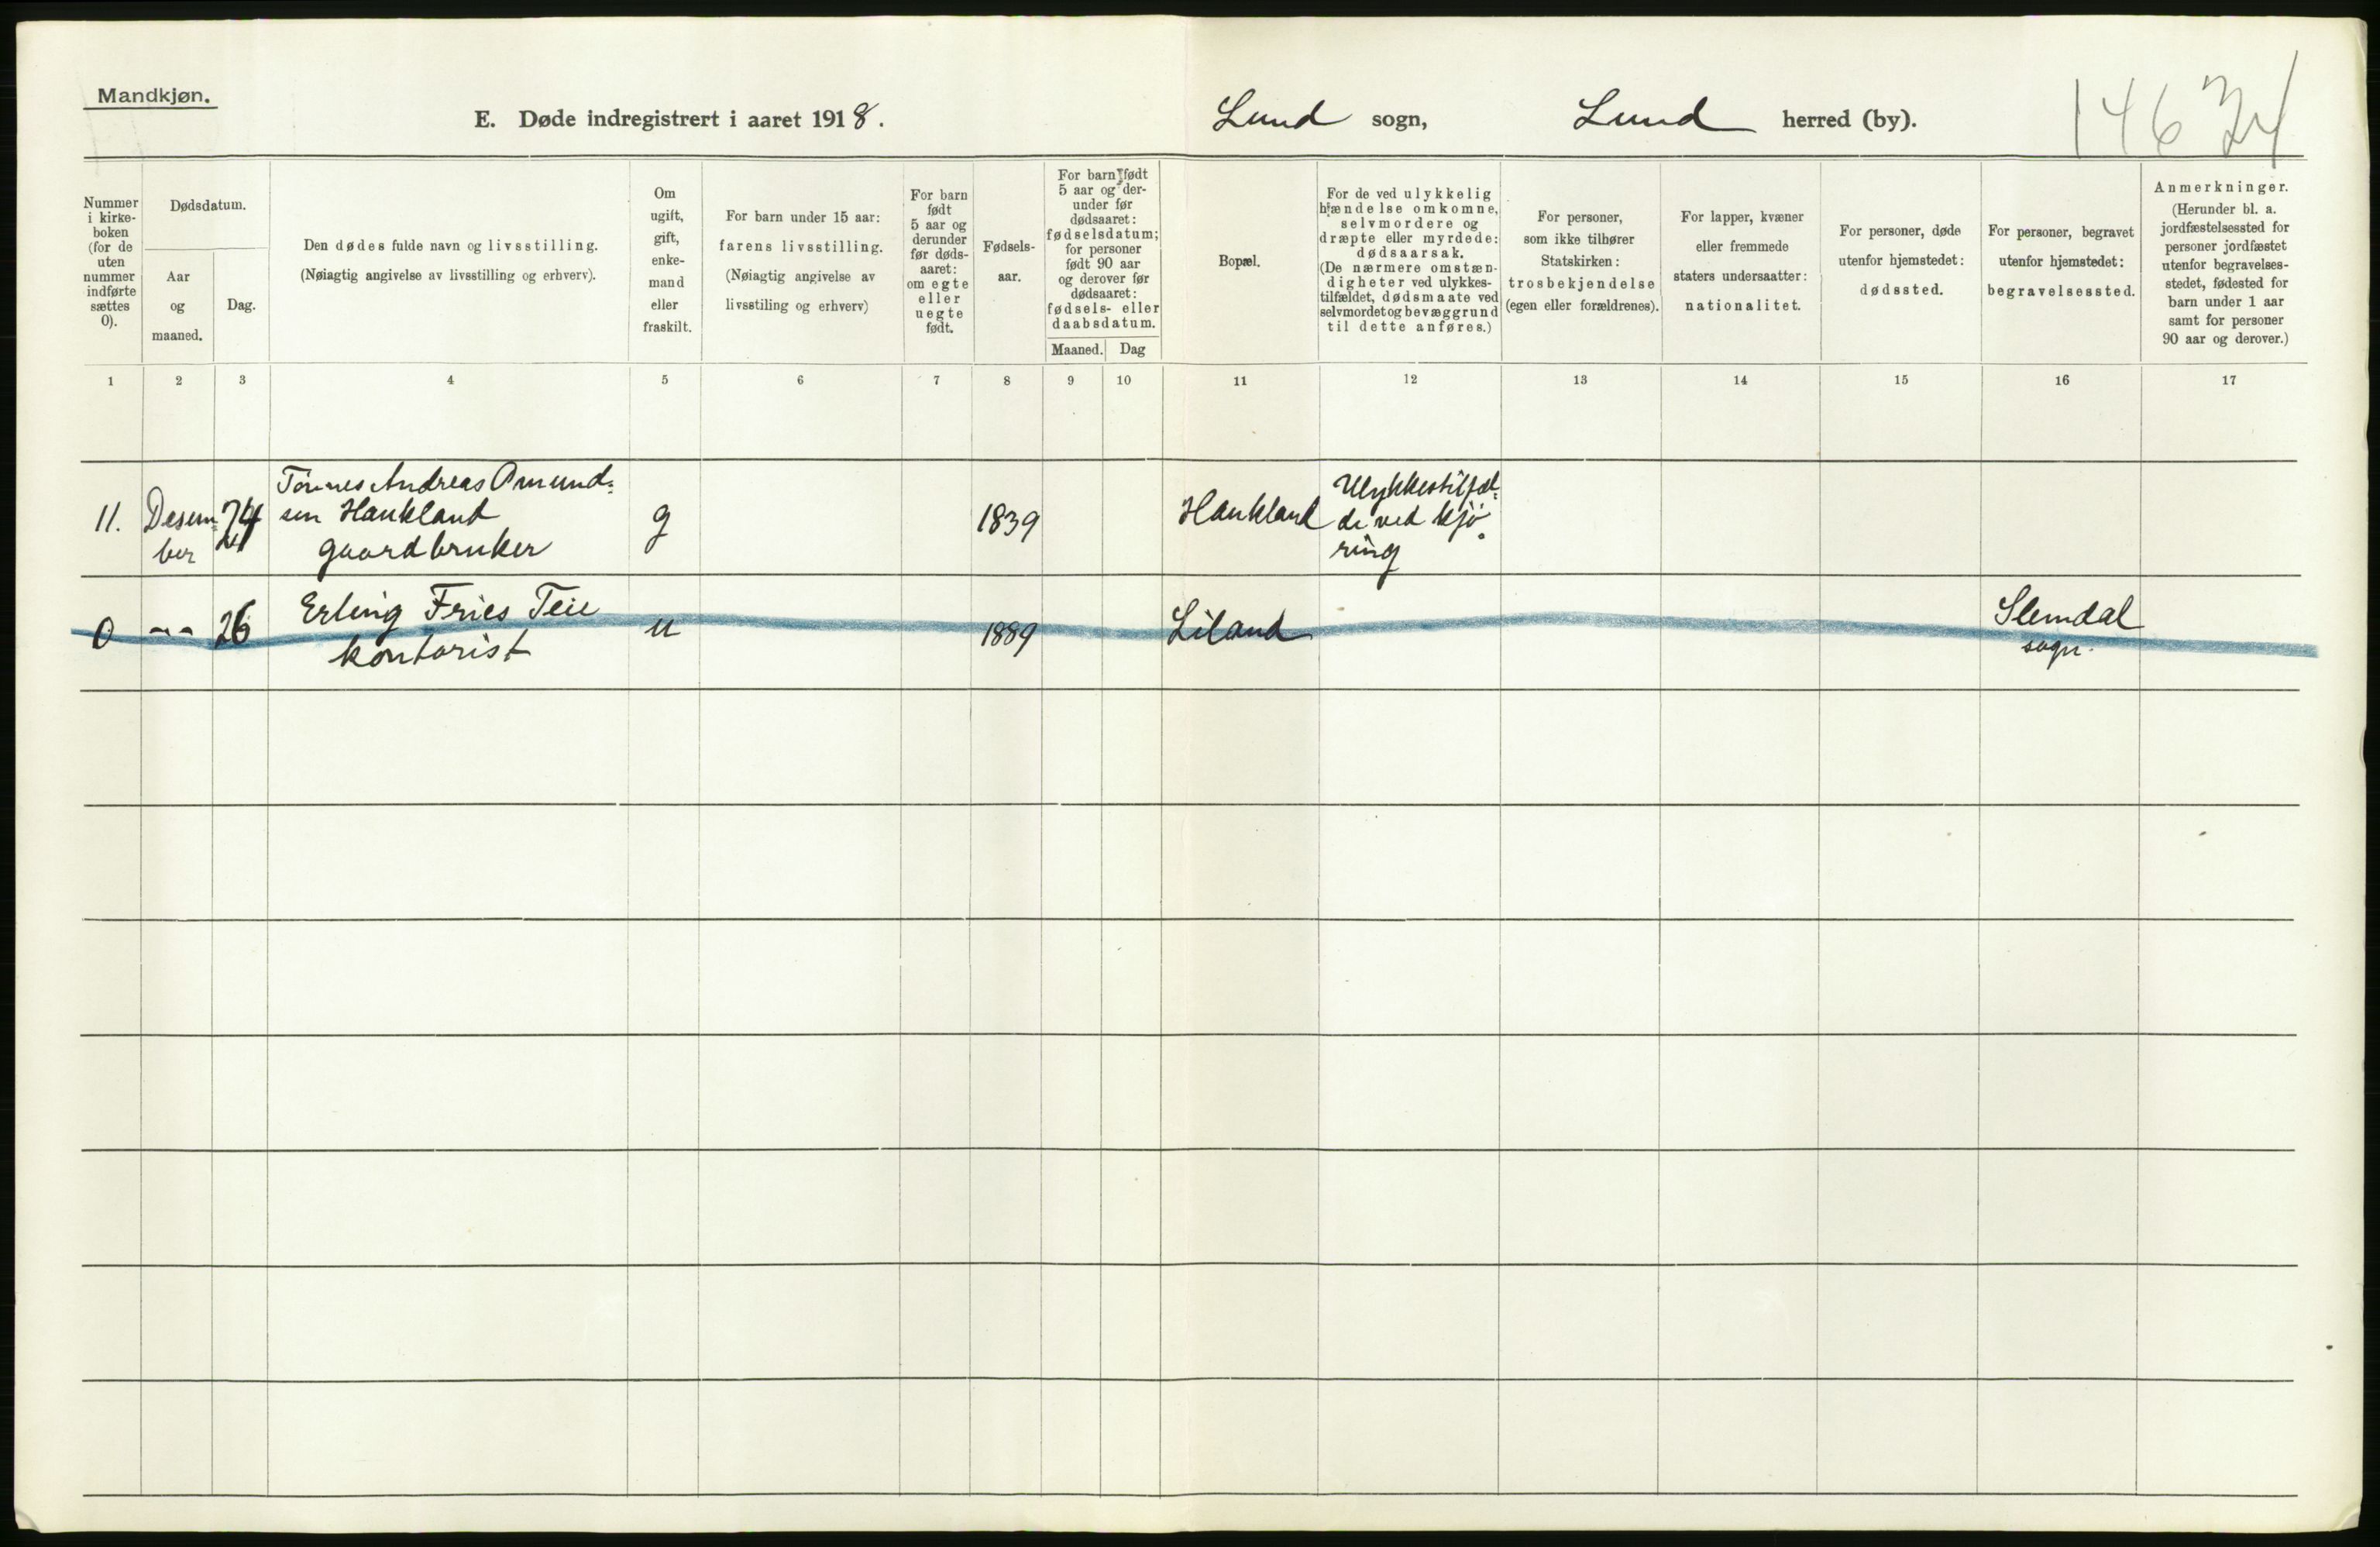 Mandkjøn.
E. Døde indregistrert i aaret 1918.
Lund sogn, Lund herred (by).
146
Nummer
i kirke-
boken
(for de
uten
nummer
indførte
sættes
0).
Dødsdatum.
Aar
og
maaned.
Dag.
Den dødes fulde navn og livsstilling.
(Nøiagtig angivelse av livsstilling og erhverv).
Om
ugift,
gift,
enke-
mand
eller
fraskilt.
For barn under 15 aar:
farens livsstilling.
(Nøiagtig angivelse av
livsstiling og erhverv)
For barn
født
5 aar og
derunder
før døds-
aaret:
om egte
eller
uegte
født.
Fødsels-
aar.
For barn født
5 aar og der-
under før
dødsaaret:
fødselsdatum;
for personer
født 90 aar
og derover før
dødsaaret:
fødsels- eller
daabsdatum.
Maaned. Dag
Bopæl.
For de ved ulykkelig
hændelse omkomne,
selvmordere og
dræpte eller myrdede:
dødsaarsak.
(De nærmere omstæn-
digheter ved ulykkes-
tilfældet, dødsmaate ved
selvmordet og bevæggrund
til dette anføres.)
For personer,
som ikke tilhører
Statskirken:
trosbekjendelse
(egen eller forældrenes).
For lapper, kvæner
eller fremmede
staters undersaatter:
nationalitet.
For personer, døde
utenfor hjemstedet:
dødssted.
For personer, begravet
utenfor hjemstedet:
begravelsessted.
Anmerkninger.
(Herunder bl. a.
jordfæstelsessted for
personer jordfæstet
utenfor begravelses-
stedet, fødested for
barn under 1 aar
samt for personer
90 aar og derover.)
1 2 3 4 5 6 7 8 9 10 11 12 13 14 15 16 17
11.
Desem-
ber
24
Tønnes Andreas Omund=
sen Haukland
gaardbruker
g
1839
Haukland
Ulykkestilfæl=
de ved kjø
ring
0
26
Erling Fries Teie
kontorist
u
1889
Liland
Slemdal
sogn.